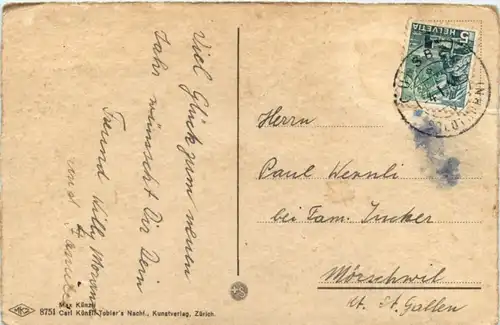 Viel Glück zum neuen
Jahr wünscht Dir Dein
Freund Willy
und Familie
Herrn
Paul Wernli
bei Fam. Zucker
Mörschwil
Kt. St. Gallen
HELVETIA
5
(SOLOTHURN)
Max Künzli
8751 Carl Künzli-Tobler's Nachf., Kunstverlag, Zürich.